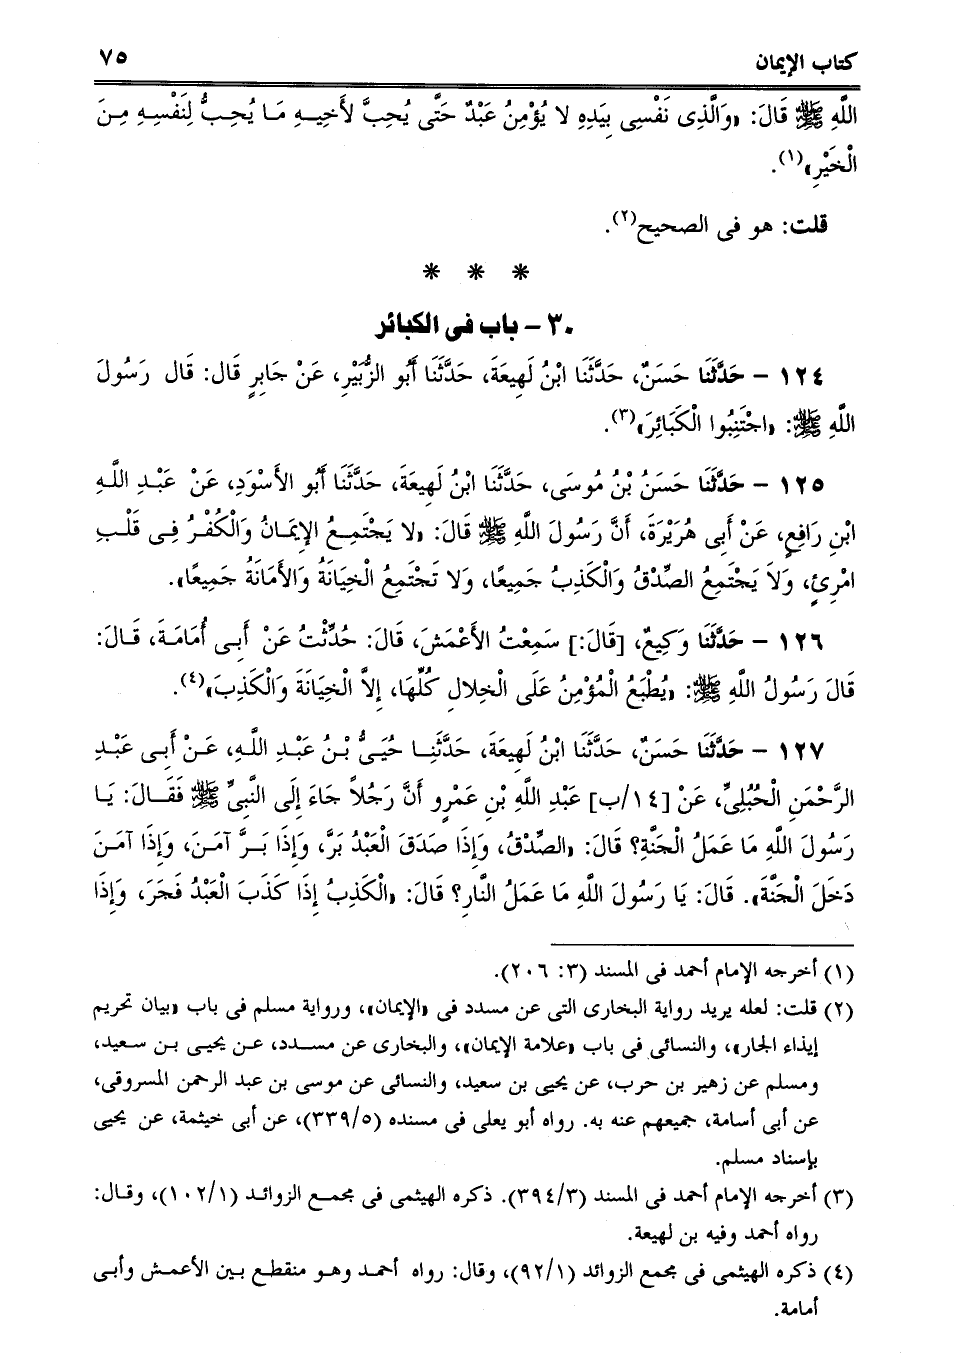 كتاب الإيمان ٧٥
اللَّهِ ﷺ قَالَ: «وَالَّذِى نَفْسِى بِيَدِهِ لا يُؤْمِنُ عَبْدٌ حَتَّى يُحِبَّ لأَخِيهِ مَا يُحِبُّ لِنَفْسِهِ مِنَ
الْخَيْرِ»(١).
قلت: هو فى الصحيح(٢).
* * *
٣٠ - باب فى الكبائر
١٢٤ - حَدَّثَنَا حَسَنٌ، حَدَّثَنَا ابْنُ لَهِيعَةَ، حَدَّثَنَا أَبُو الزُّبَيْرِ، عَنْ جَابِرٍ قَالَ: قَال رَسُولَ
اللَّهِ ﷺ: «اجْتَنِبُوا الْكَبَائِرَ»(٣).
١٢٥ - حَدَّثَنَا حَسَنُ بْنُ مُوسَى، حَدَّثَنَا ابْنُ لَهِيعَةَ، حَدَّثَنَا أَبُو الأَسْوَدِ، عَنْ عَبْدِ اللَّهِ
ابْنِ رَافِعٍ، عَنْ أَبِى هُرَيْرَةَ، أَنَّ رَسُولَ اللَّهِ ﷺ قَالَ: «لا يَجْتَمِعُ الإِيمَانُ وَالْكُفْرُ فِى قَلْبِ
امْرِئٍ، وَلاَ يَجْتَمِعُ الصِّدْقُ وَالْكَذِبُ جَمِيعًا، وَلا تَجْتَمِعُ الْخِيَانَةُ وَالأَمَانَةُ جَمِيعًا».
١٢٦ - حَدَّثَنَا وَكِيعٌ، [قَالَ:] سَمِعْتُ الأَعْمَشَ، قَالَ: حُدِّثْتُ عَنْ أَبِى أُمَامَةَ، قَالَ:
قَالَ رَسُولُ اللَّهِ ﷺ: «يُطْبَعُ الْمُؤْمِنُ عَلَى الْخِلالِ كُلِّهَا، إِلاَّ الْخِيَانَةَ وَالْكَذِبَ»(٤).
١٢٧ - حَدَّثَنَا حَسَنٌ، حَدَّثَنَا ابْنُ لَهِيعَةَ، حَدَّثَنَا حُيَىُّ بْنُ عَبْدِ اللَّهِ، عَنْ أَبِى عَبْدِ
الرَّحْمَنِ الْحُبُلِىِّ، عَنْ [١٤/ب] عَبْدِ اللَّهِ بْنِ عَمْرٍو أَنَّ رَجُلاً جَاءَ إِلَى النَّبِىِّ ﷺ فَقَالَ: يَا
رَسُولَ اللَّهِ مَا عَمَلُ الْجَنَّةِ؟ قَالَ: «الصِّدْقُ، وَإِذَا صَدَقَ الْعَبْدُ بَرَّ، وَإِذَا بَرَّ آمَنَ، وَإِذَا آمَنَ
دَخَلَ الْجَنَّةَ». قَالَ: يَا رَسُولَ اللَّهِ مَا عَمَلُ النَّارِ؟ قَالَ: «الْكَذِبُ إِذَا كَذَبَ الْعَبْدُ فَجَرَ، وَإِذَا
(١) أخرجه الإمام أحمد فى المسند (٣: ٢٠٦).
(٢) قلت: لعله يريد رواية البخارى التى عن مسدد فى «الإيمان»، ورواية مسلم فى باب «بيان تحريم
إيذاء الجار»، والنسائى فى باب «علامة الإيمان»، والبخارى عن مسدد، عن يحيى بن سعيد،
ومسلم عن زهير بن حرب، عن يحيى بن سعيد، والنسائى عن موسى بن عبد الرحمن المسروقى،
عن أبى أسامة، جميعهم عنه به. رواه أبو يعلى فى مسنده (٣٣٩/٥)، عن أبى خيثمة، عن يحيى
بإسناد مسلم.
(٣) أخرجه الإمام أحمد فى المسند (٣٩٤/٣). ذكره الهيثمى فى مجمع الزوائد (١٠٢/١)، وقال:
رواه أحمد وفيه بن لهيعة.
(٤) ذكره الهيثمى فى مجمع الزوائد (٩٢/١)، وقال: رواه أحمد وهو منقطع بين الأعمش وأبى
أمامة.